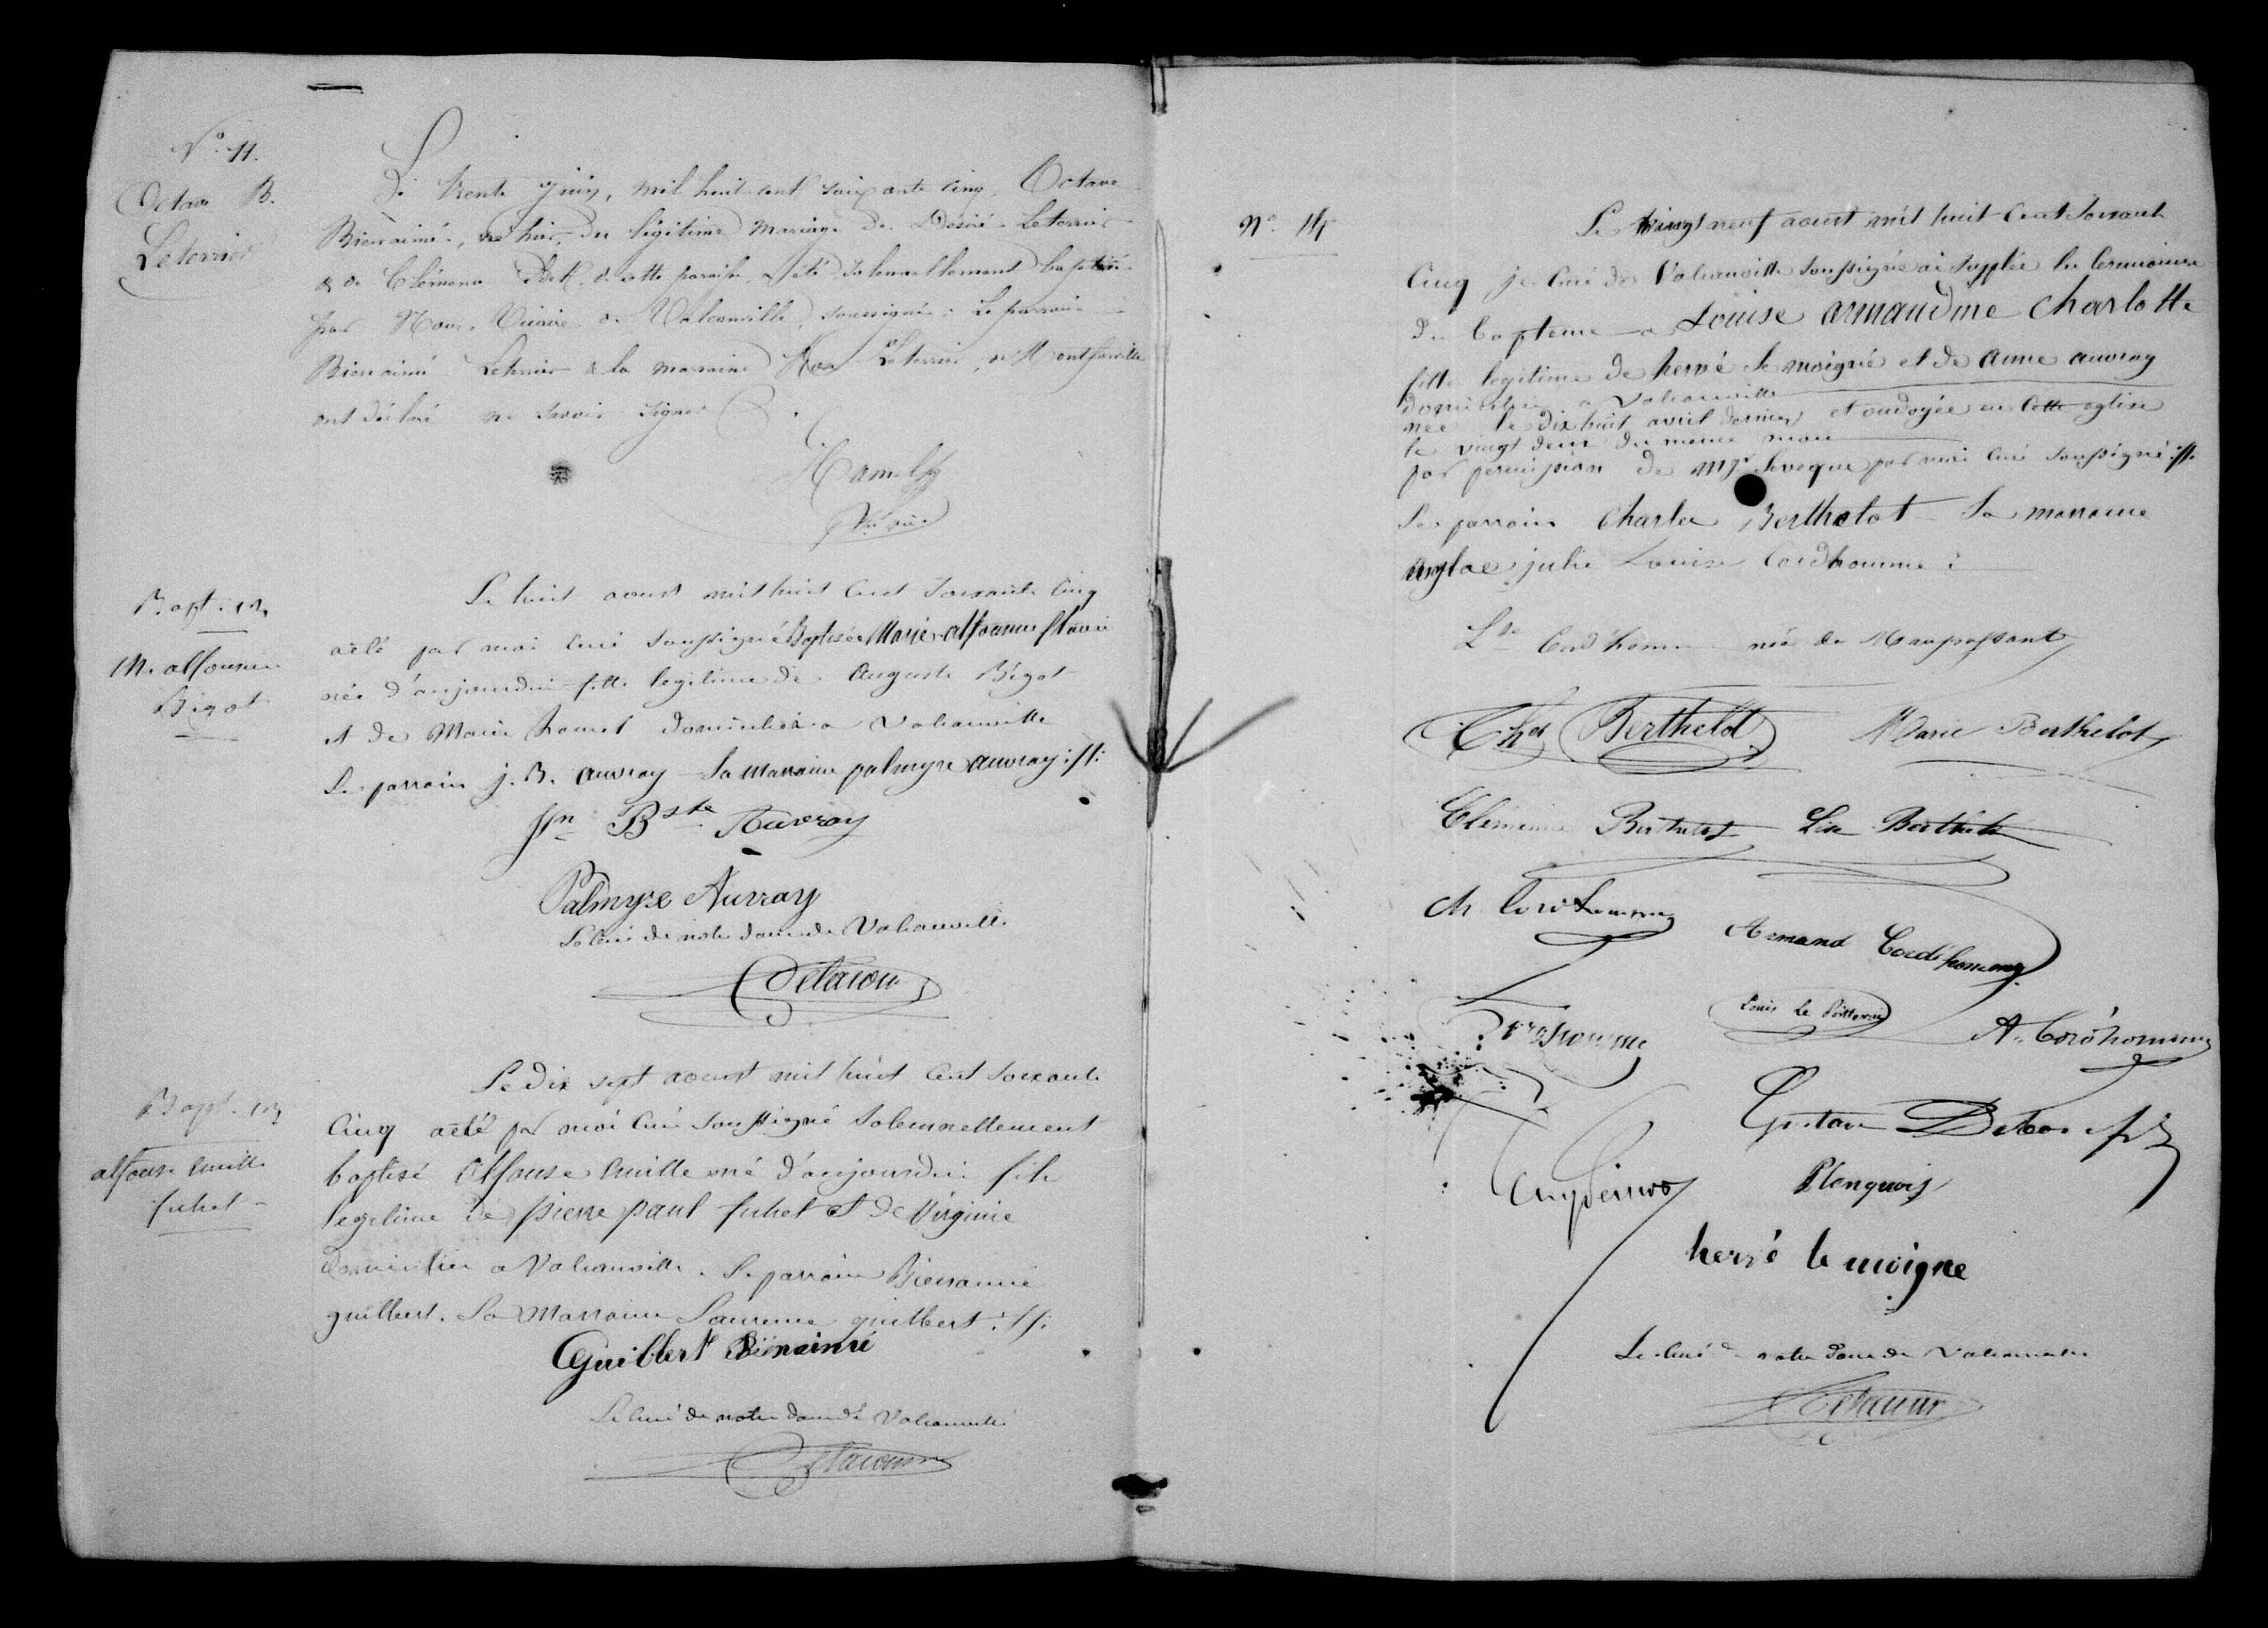 N° 11.
Octave B.
Leterrier
Le trente juin, mil huit cent soixante cinq, Octave
Bienaimé, né hier, du légitime mariage de Désiré Leterrier
& de Clémence de cette paroisse, a été solennellement baptisé
par Nous, Vicaire de Valcanville, soussigné; Le parrain
Bienaimé Leterrier & la marraine Leterrier, de Montfarville
ont déclaré ne savoir signer
Hamel
Bapt. 12
M. alfonsine
Bigot
Le huit aoust mil huit cent soixante cinq
a été par moi curé soussigné Baptisée Marie alfonsine flavie
née d'aujourdui fille legitime de Auguste Bigot
et de Marie hamel domiciliés a valcanville
Le parrain j. B. auvray La Marraine palmyre auvray ://:
Jn Bste Auvray
Palmyre Auvray
Le curé de notre dame de Valcanville
Bapt. 13
alfonse
fuhet
Le dix sept aoust mil huit cent soixante
cinq a été par moi curé soussigné solennellement
baptisé alfonse né d'aujourdui fils
legitime de pierre paul fuhet et de Virginie
domiciliés a Valcanville. Le parrain Bienaimé
guilbert. La Marraine Laurence guilbert ://:
Guilbert Bienaimé
Le curé de notre dame de Valcanville
N° 14
Le vingt neuf aoust mil huit cent soixante
cinq je curé de Valcanville soussigné ai supplée les ceremonies
du bapteme a Louise armandine charlotte
fille legitime de hervé le moigne et de anne auvray
domiciliés a Valcanville
née le dix huit avril dernier et ondoyée en cette eglise
le vingt deux du meme mois
par permission de Mgr Leveque par moi curé soussigné ://:
Le parrain Charles Berthelot La marraine
aglae julie Louise Cordhomme :
Lse Cord'homme née de Maupassant
Chles Berthelot Marie Berthelot
Clémence Berthelot Lise Berthelot
Ch Cord'homme
Armand Cord'homme
Louis Le Poittevin
A. Cord'homme
Gustave
hervé le moigne
Le curé de notre dame de Valcanville